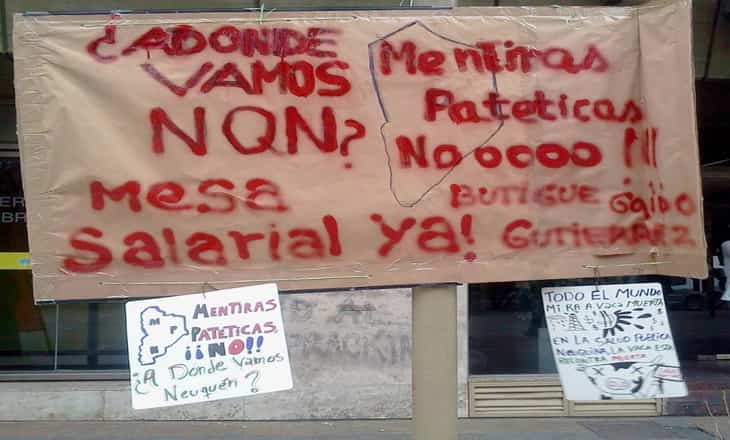 ¿ADONDE
VAMOS
NQN?
Mentiras
Pateticas
Nooooo !!!
MESA
Salarial Ya!
BUTIGUE
GUTIERREZ
MENTIRAS
PATETICAS.
¡¡NO!!
¿A Donde Vamos
Neuquén?
MPN
TODO EL MUNDO
MIRA A VACA MUERTA
EN LA SALUD PÚBLICA
NEUQUINA LA VACA ESTA
MUERTA